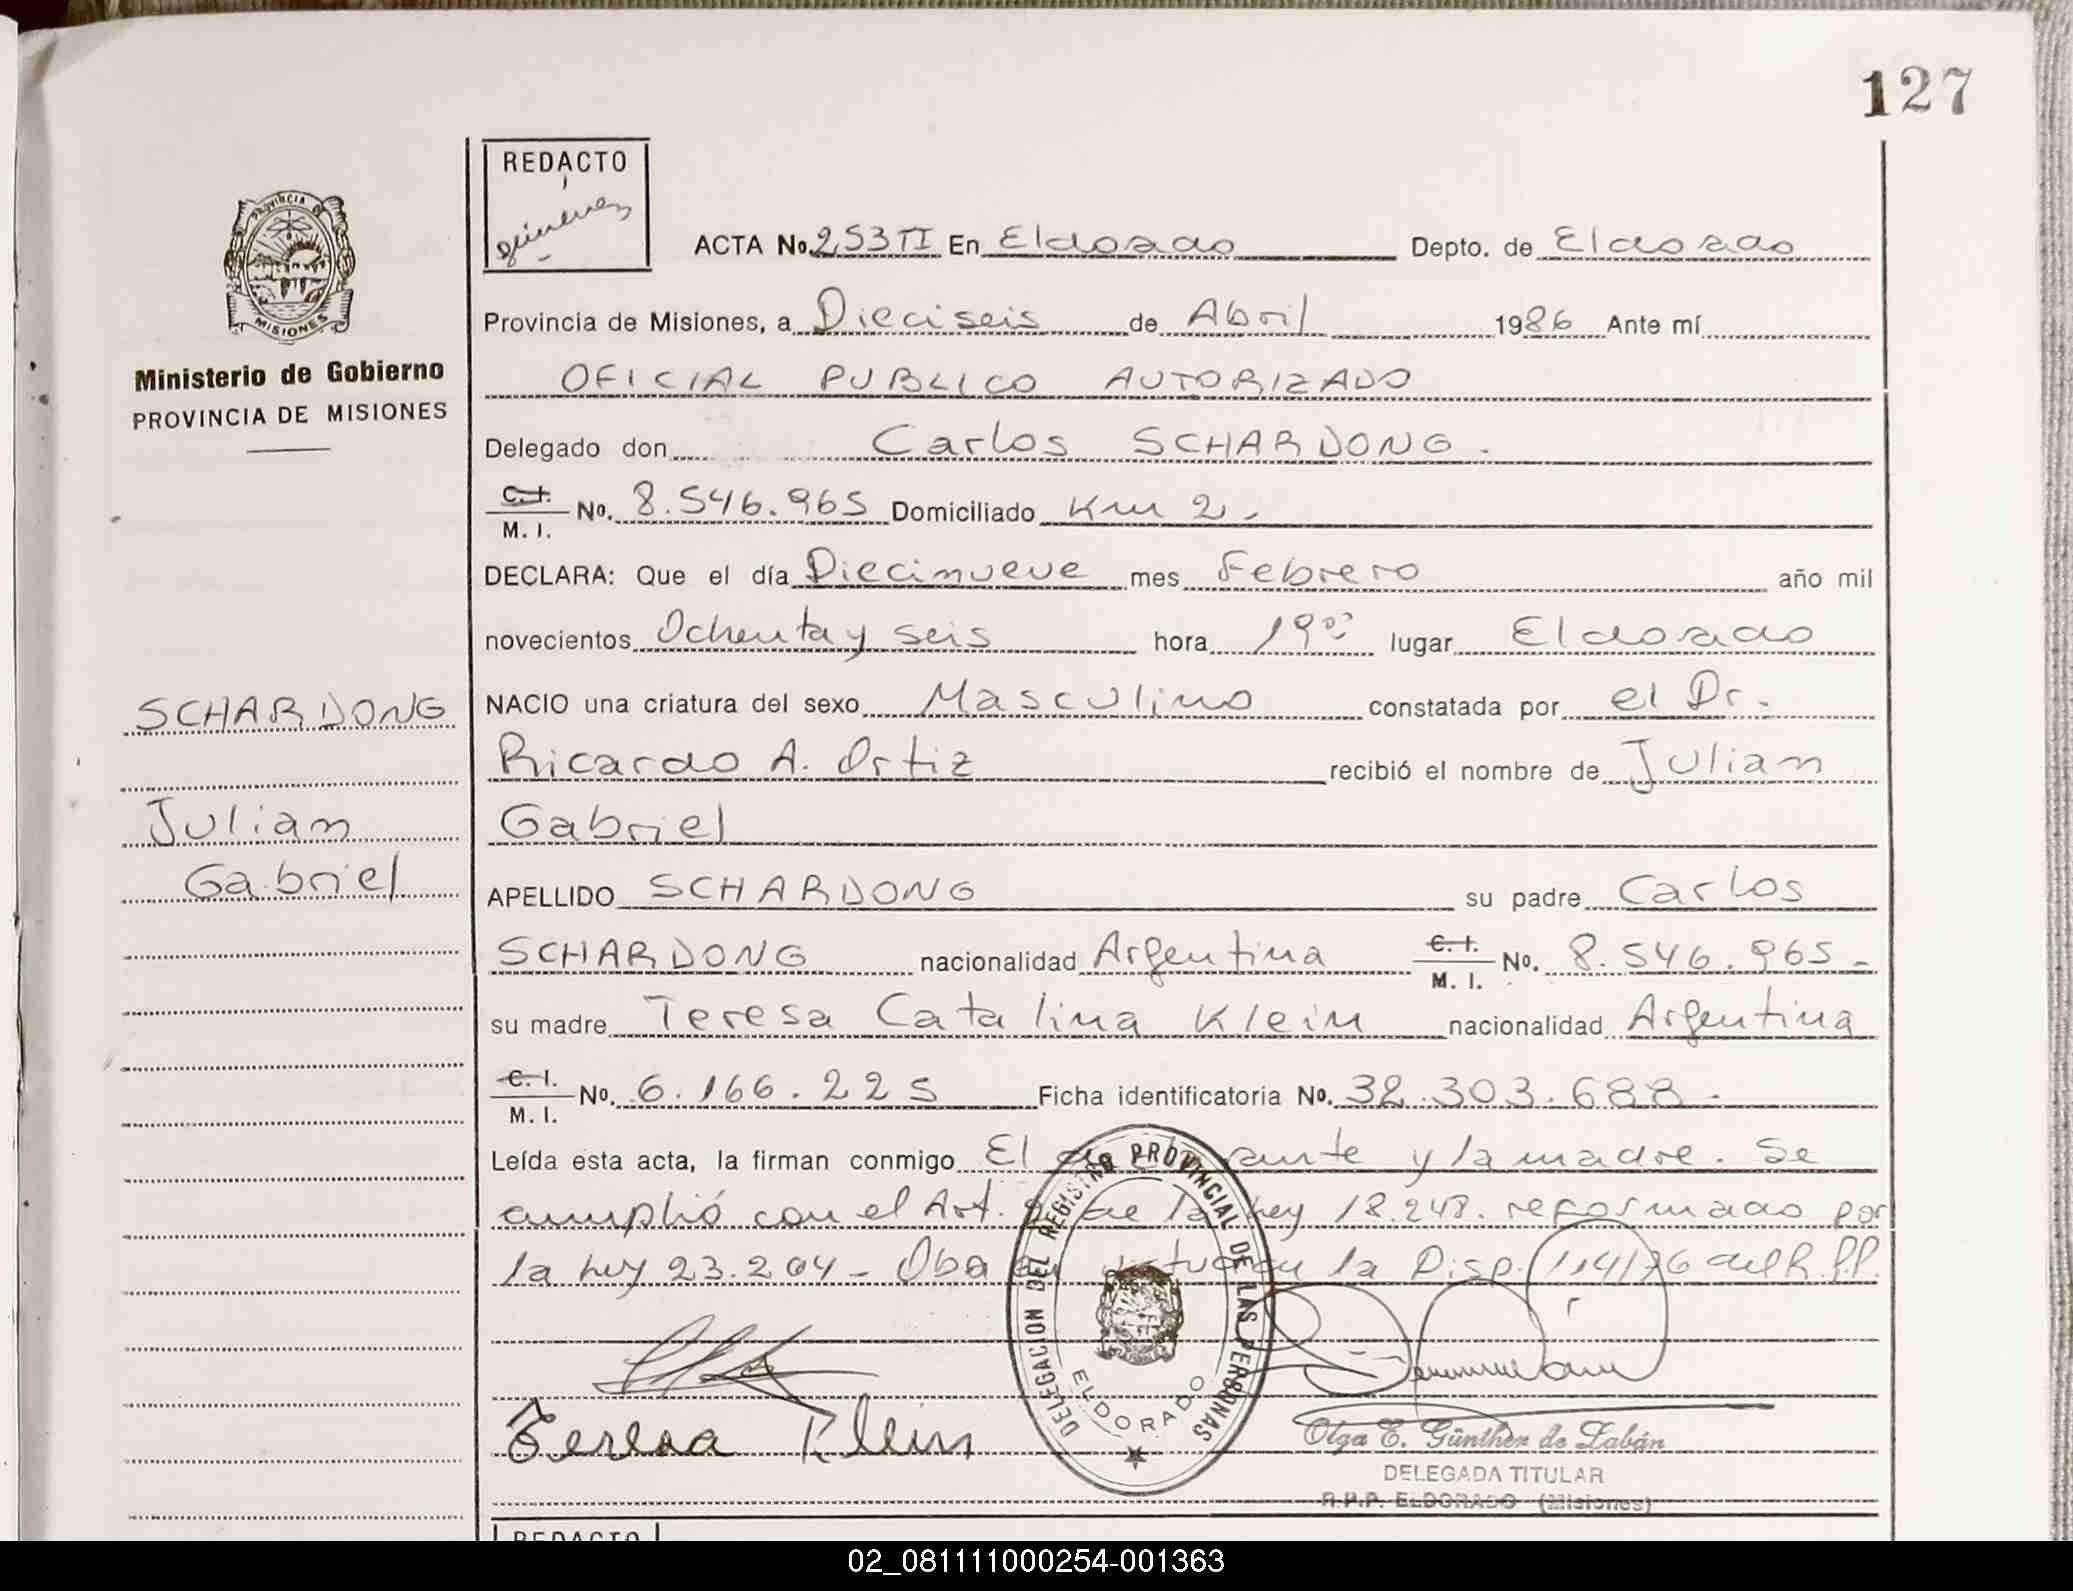 127
REDACTO
gimenez
ACTA No. 253 TI En Eldorado Depto. de Eldorado
Provincia de Misiones, a Dieciseis de Abril 1986 Ante mí
Ministerio de Gobierno
PROVINCIA DE MISIONES
OFICIAL PUBLICO AUTORIZADO
Delegado don Carlos SCHARDONG.
C. I. M. I. No. 8.546.965 Domiciliado Km 2.
DECLARA: Que el día Diecinueve mes Febrero año mil
novecientos Ochenta y seis hora 19 00 lugar Eldorado
SCHARDONG
NACIO una criatura del sexo Masculino constatada por el Dr.
Ricardo A. Ortiz recibió el nombre de Julian
Julian
Gabriel
Gabriel
APELLIDO SCHARDONG su padre Carlos
SCHARDONG nacionalidad Argentina C. I. M. I. No. 8.546.965-
su madre Teresa Catalina Klein nacionalidad Argentina
C. I. M. I. No. 6.166.225 Ficha identificatoria No. 32.303.688.
Leída esta acta, la firman conmigo El y la madre. Se
cumplió con el Art. de la Ley 18.248. reformado por
la Ley 23.264- la Disp. 114/76 del R.P.P.
Teresa Klein
DELEGACION DEL REGISTRO PROVINCIAL DE LAS PERSONAS
ELDORADO
Olga E. Günther de Labán
DELEGADA TITULAR
R.P.P. ELDORADO (Misiones)
REDACTO
02_081111000254-001363